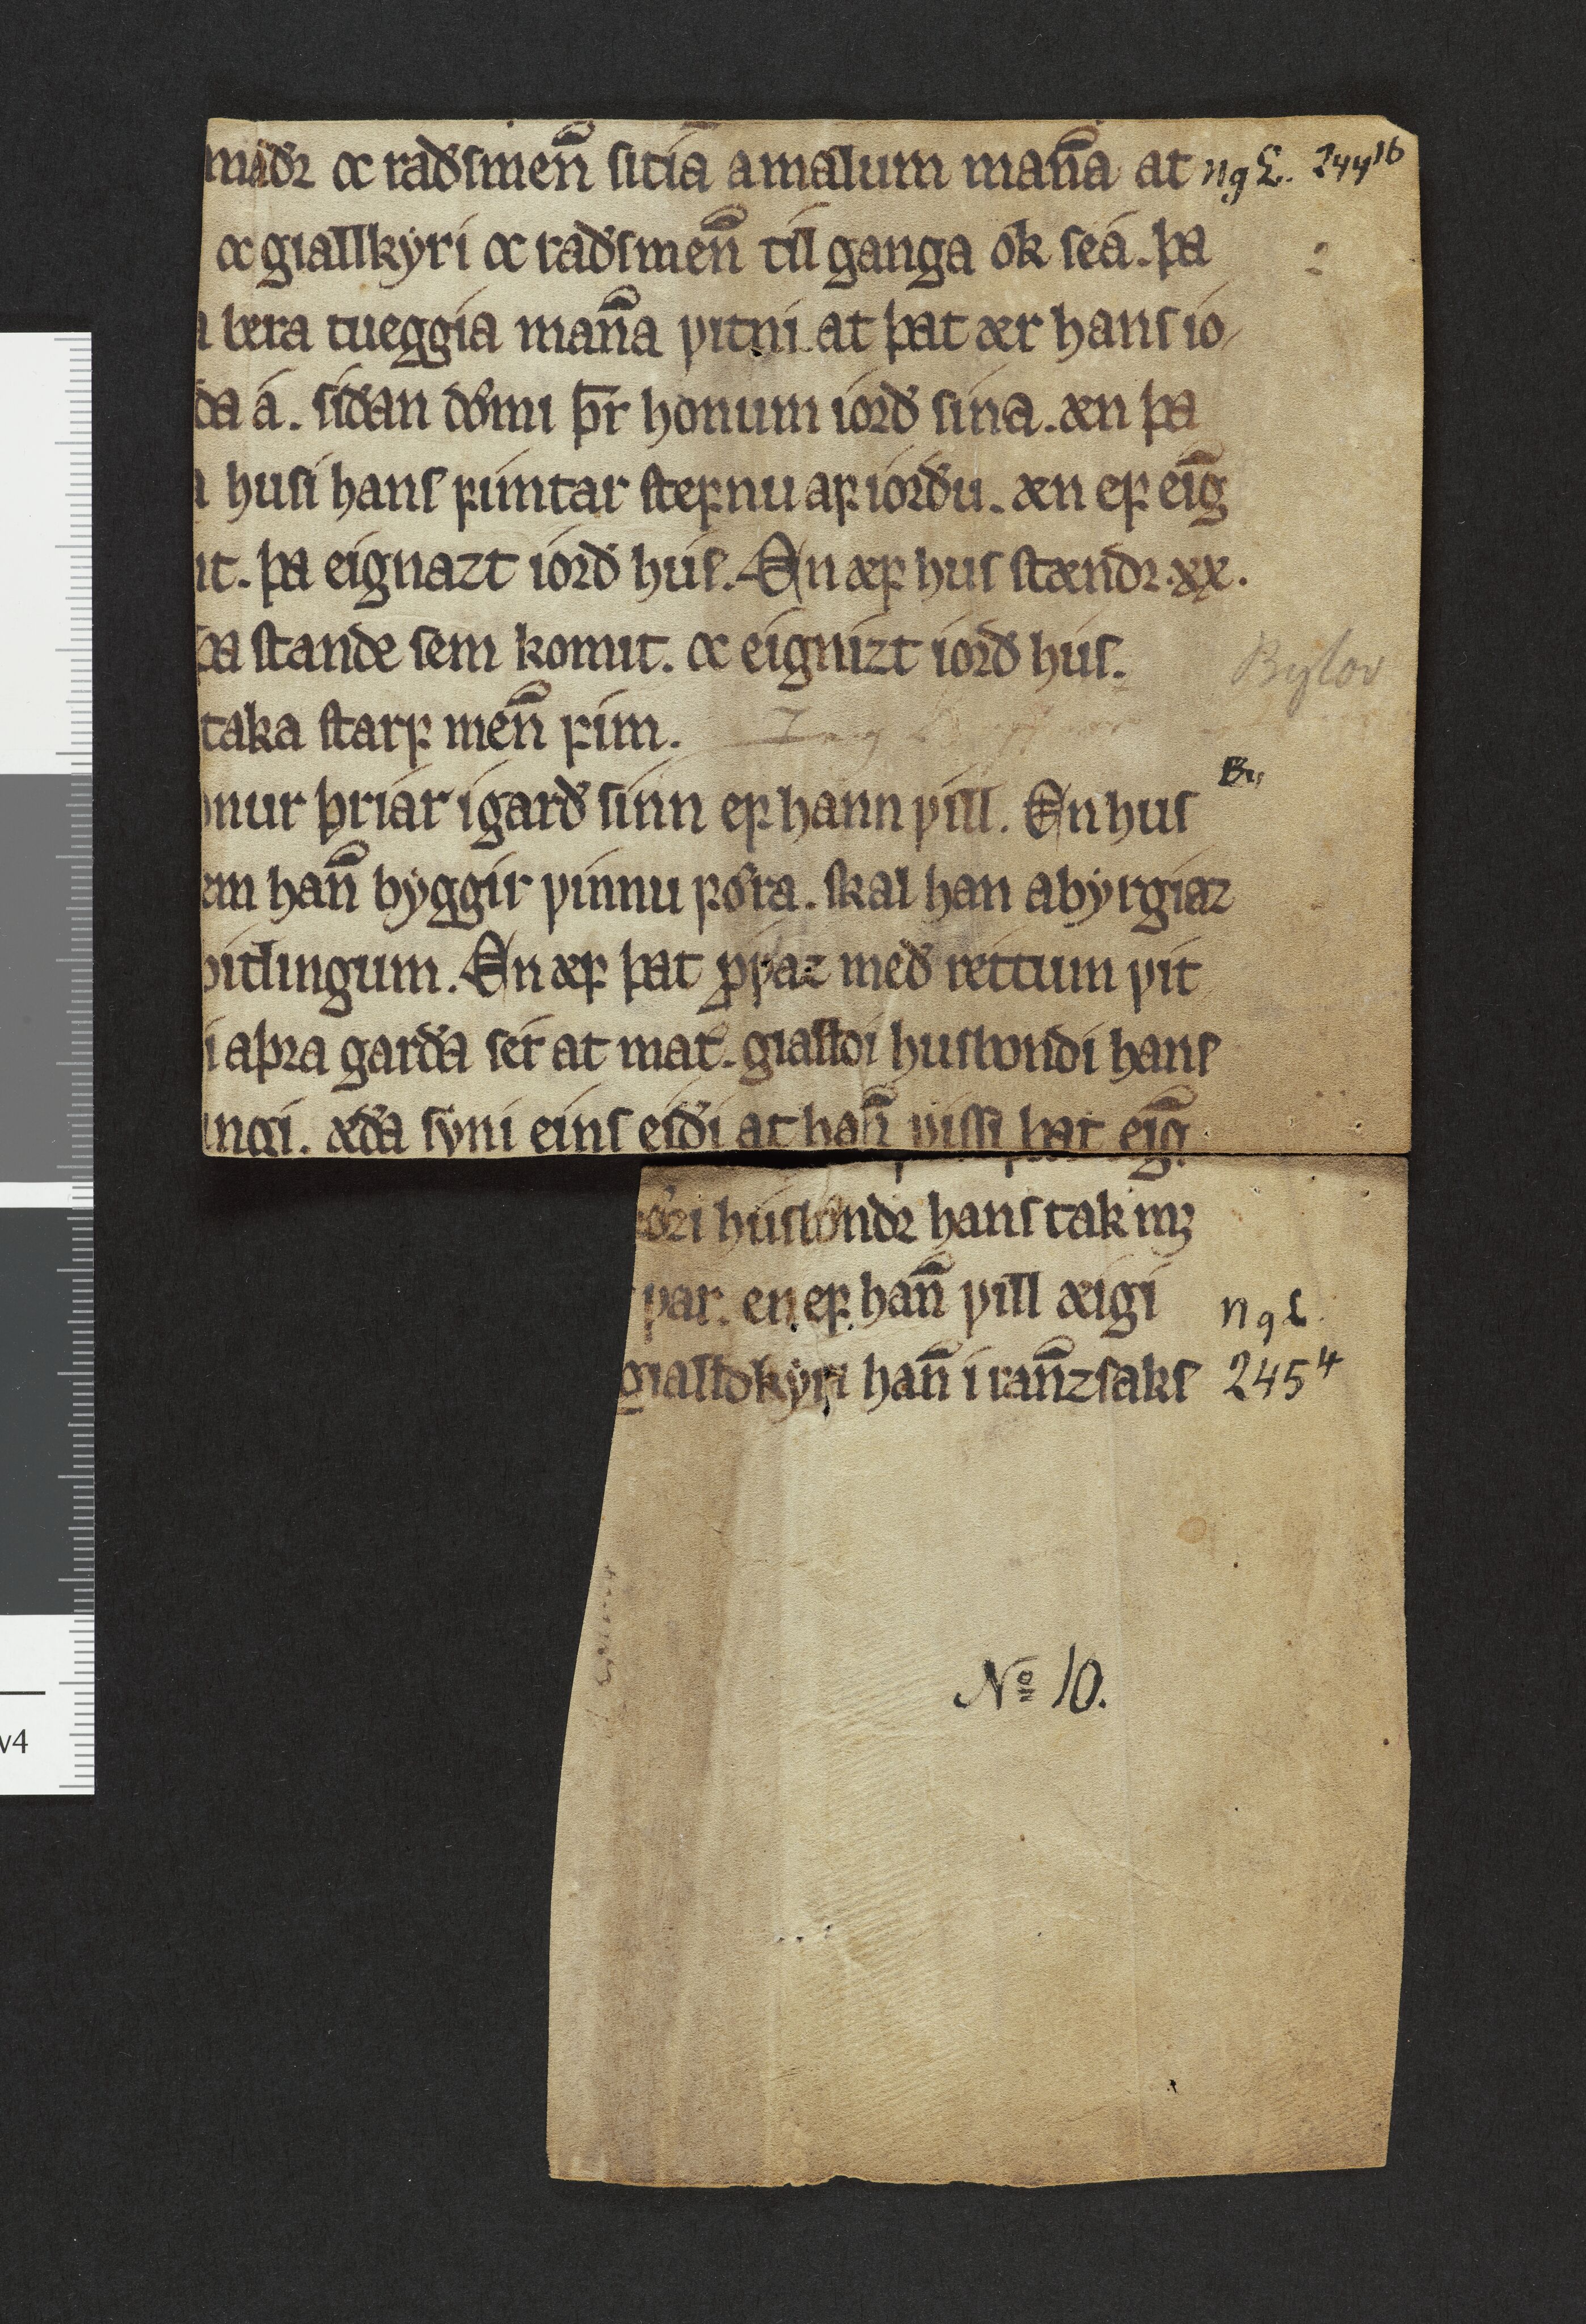 maðꝛ ꝏ raðsmen̄ sitia amalum man̄a at ngL. 244¹⁶
ꝏ giallkyri ꝏ raðsmen̄ til ganga ok sea. þa
bera tueggia man̄a ꝩitni at þat ær hans io
ða á. siðan dømi þr̄ honum iorð sina. æn þa
husi hans fimtar stefnu af iorðu. æn ef eig̅
ut. þa eignazt iorð hus. En æf hus stændꝛ .xx.
þa stande sem komit. ꝏ eignizt iorð hus.
Bylov
taka starf men̄ fim.
onur þriar i garð sinn ef hann ꝩill. En hus
em han̄ byggir ꝩinnu føra. skal han abyrgiaz
vitlingum. En æf þat p̄ꝩaz með rettum ꝩit
i aþra garða ser at mat. gialldi husbondi hans
ingi. æða syni eins eiði at han̄ ꝩissi þat eig̅.
øri husbondꝛ hans tak mꝫ
ꝩar. en ef han̄ ꝩill æigi ngL.
gialldkyri han̄ i ran̄zsaks 245⁴
Nº 10.